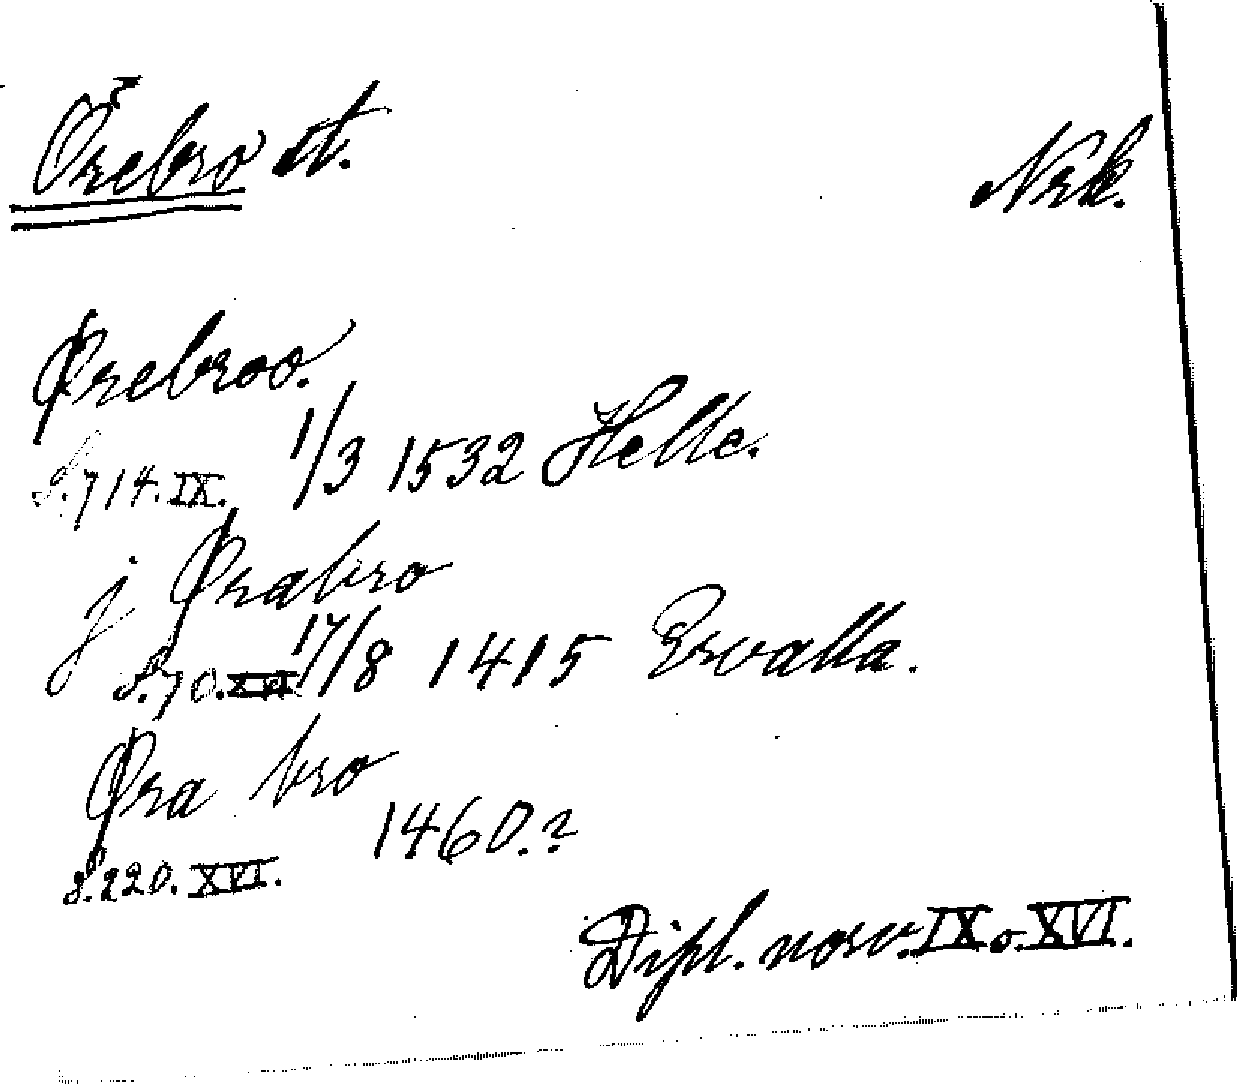 Örebro st.
Nrk.
Ørebroo.
S. 714. IX. 1/3 1532 Helle.
j Ørabro
S. 70. XVI 17/8 1415 Ervalla.
Øra bro
1460.?
S. 220. XVI.
Dipl. norv. IX o. XVI.